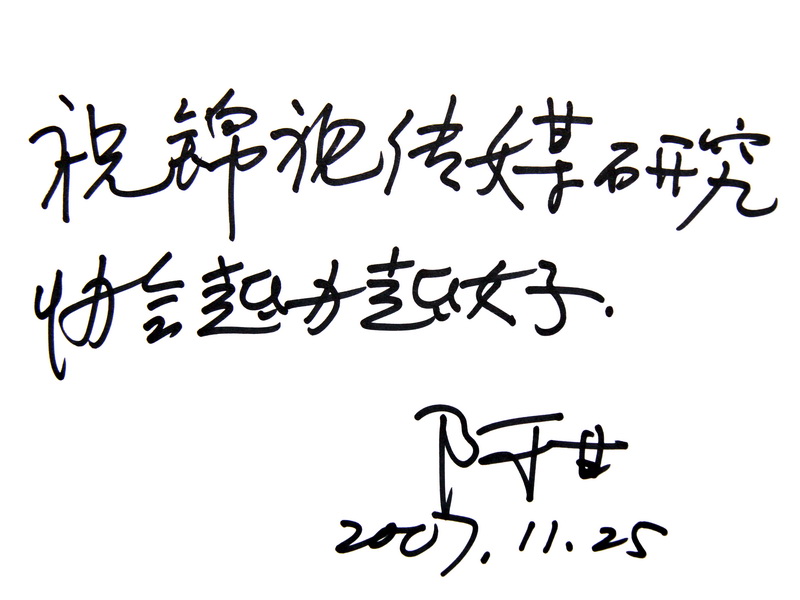 祝锦观传媒研究
协会越办越好.
2007.11.25